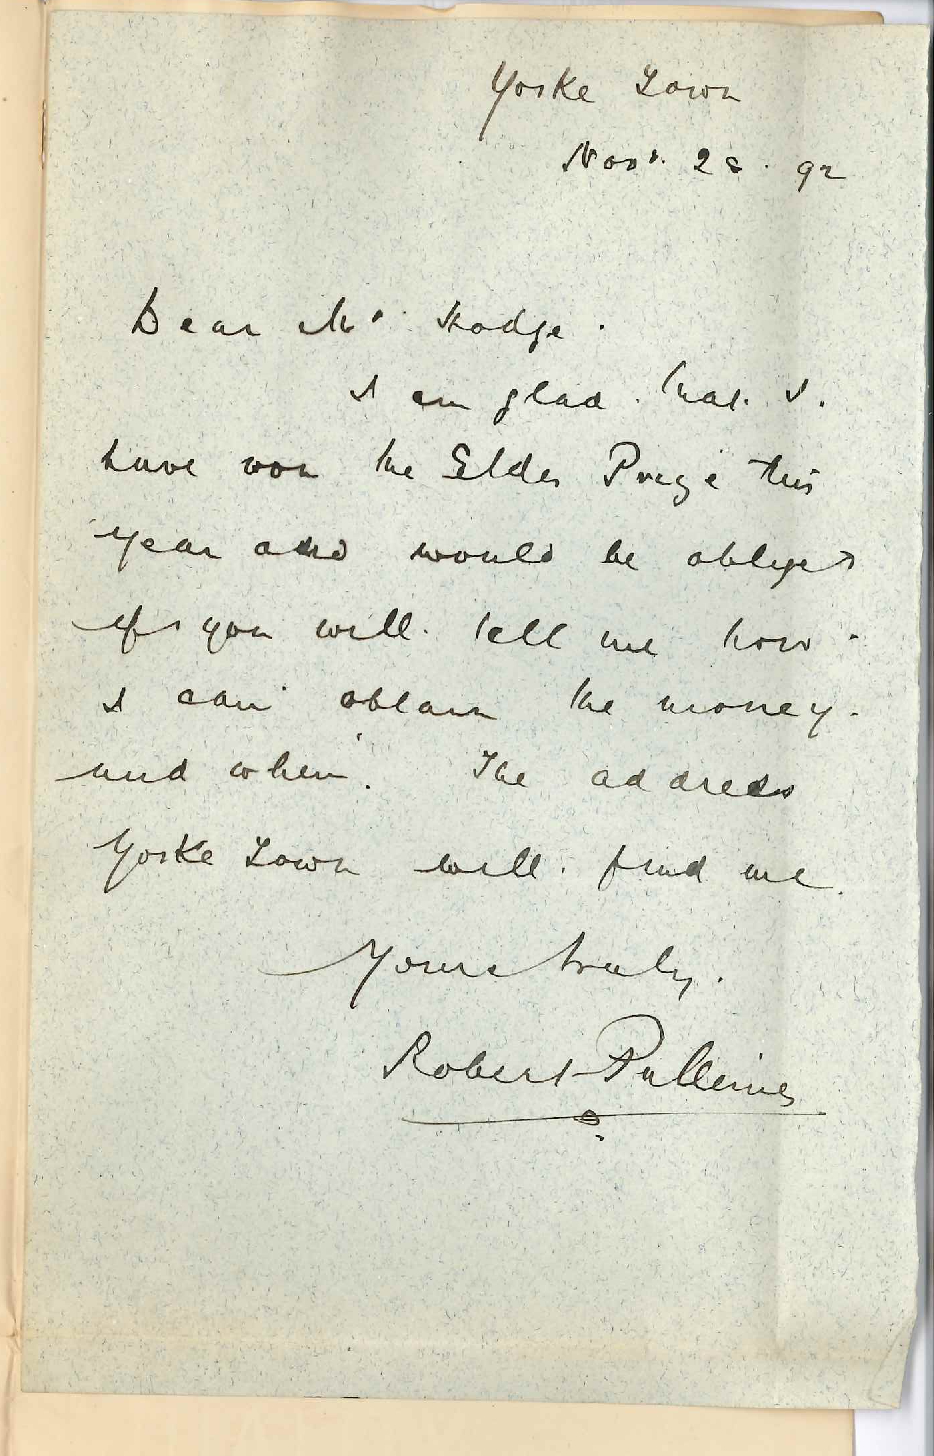 Yorke Town
Novr. 28. 92
Dear Mr. Hodge.
I am glad that I
have won the Elder Prize this
year and would be obliged
if you will tell me how
I can obtain the money
and when. The address
Yorke Town will find me.
Yours truly.
Robert Pulleine